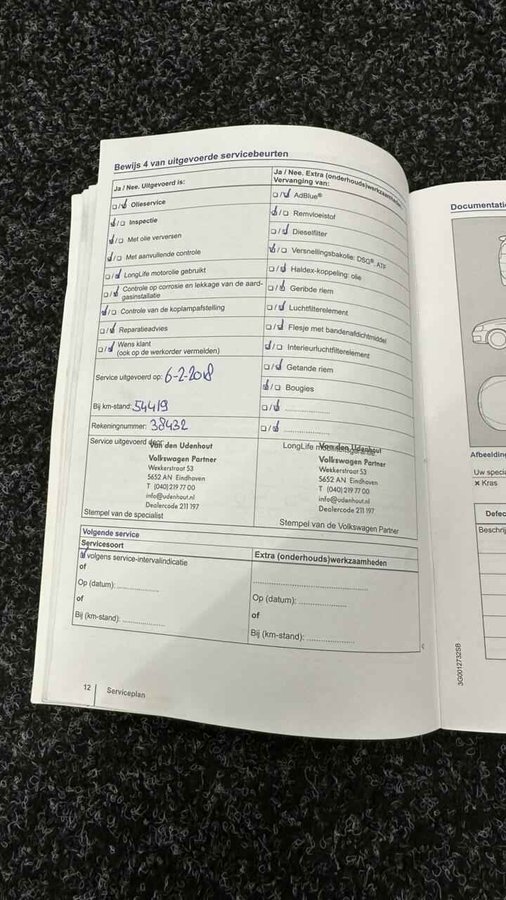 Bewijs 4 van uitgevoerde servicebeurten
Ja / Nee. Uitgevoerd is:
☐/☑ Olieservice
☑/☐ Inspectie
☑/☐ Met olie verversen
☑/☐ Met aanvullende controle
☐/☑ LongLife motorolie gebruikt
☐/☑ Controle op corrosie en lekkage van de aard-
gasinstallatie
☑/☐ Controle van de koplampafstelling
☐/☑ Reparatieadvies
☐/☑ Wens klant
(ook op de werkorder vermelden)
Service uitgevoerd op: 6-2-2018
Bij km-stand: 54419
Rekeningnummer: 38432
Service uitgevoerd door:
Van den Udenhout
Volkswagen Partner
Weskerstraat 53
5652 AN Eindhoven
T (040) 219 77 00
info@udenhout.nl
Dealercode 211 197
Stempel van de specialist
Ja / Nee. Extra (onderhouds)werkzaamheden
Vervanging van:
☐/☑ AdBlue®
☑/☐ Remvloeistof
☐/☑ Dieselfilter
☑/☐ Versnellingsbakolie: DSG®, ATF
☐/☑ Haldex-koppeling: olie
☐/☑ Geribde riem
☐/☑ Luchtfilterelement
☐/☑ Flesje met bandenafdichtmiddel
☑/☐ Interieurluchtfilterelement
☐/☑ Getande riem
☑/☐ Bougies
☐/☑ ....................
☐/☑ ....................
LongLife
Van den Udenhout
Volkswagen Partner
Weskerstraat 53
5652 AN Eindhoven
T (040) 219 77 00
info@udenhout.nl
Dealercode 211 197
Stempel van de Volkswagen Partner
Volgende service
Servicesoort
☑ volgens service-intervalindicatie
of
Op (datum): ....................
of
Bij (km-stand): ....................
Extra (onderhouds)werkzaamheden
....................
Op (datum): ....................
of
Bij (km-stand): ....................
12 Serviceplan
Documentati
Afbeelding
Uw speci
× Kras
Defec
Beschrij
3G0012732SB